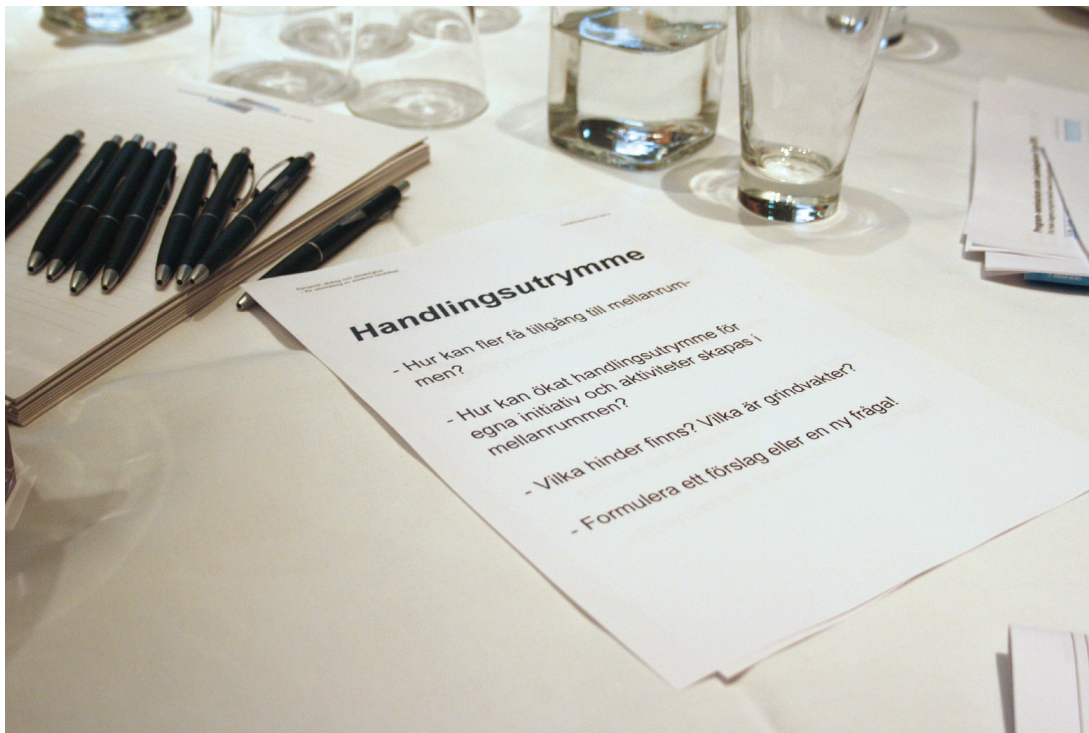 Handlingsutrymme
- Hur kan fler få tillgång till mellanrum-
men?
- Hur kan ökat handlingsutrymme för
egna initiativ och aktiviteter skapas i
mellanrummen?
- Vilka hinder finns? Vilka är grindvakter?
- Formulera ett förslag eller en ny fråga!